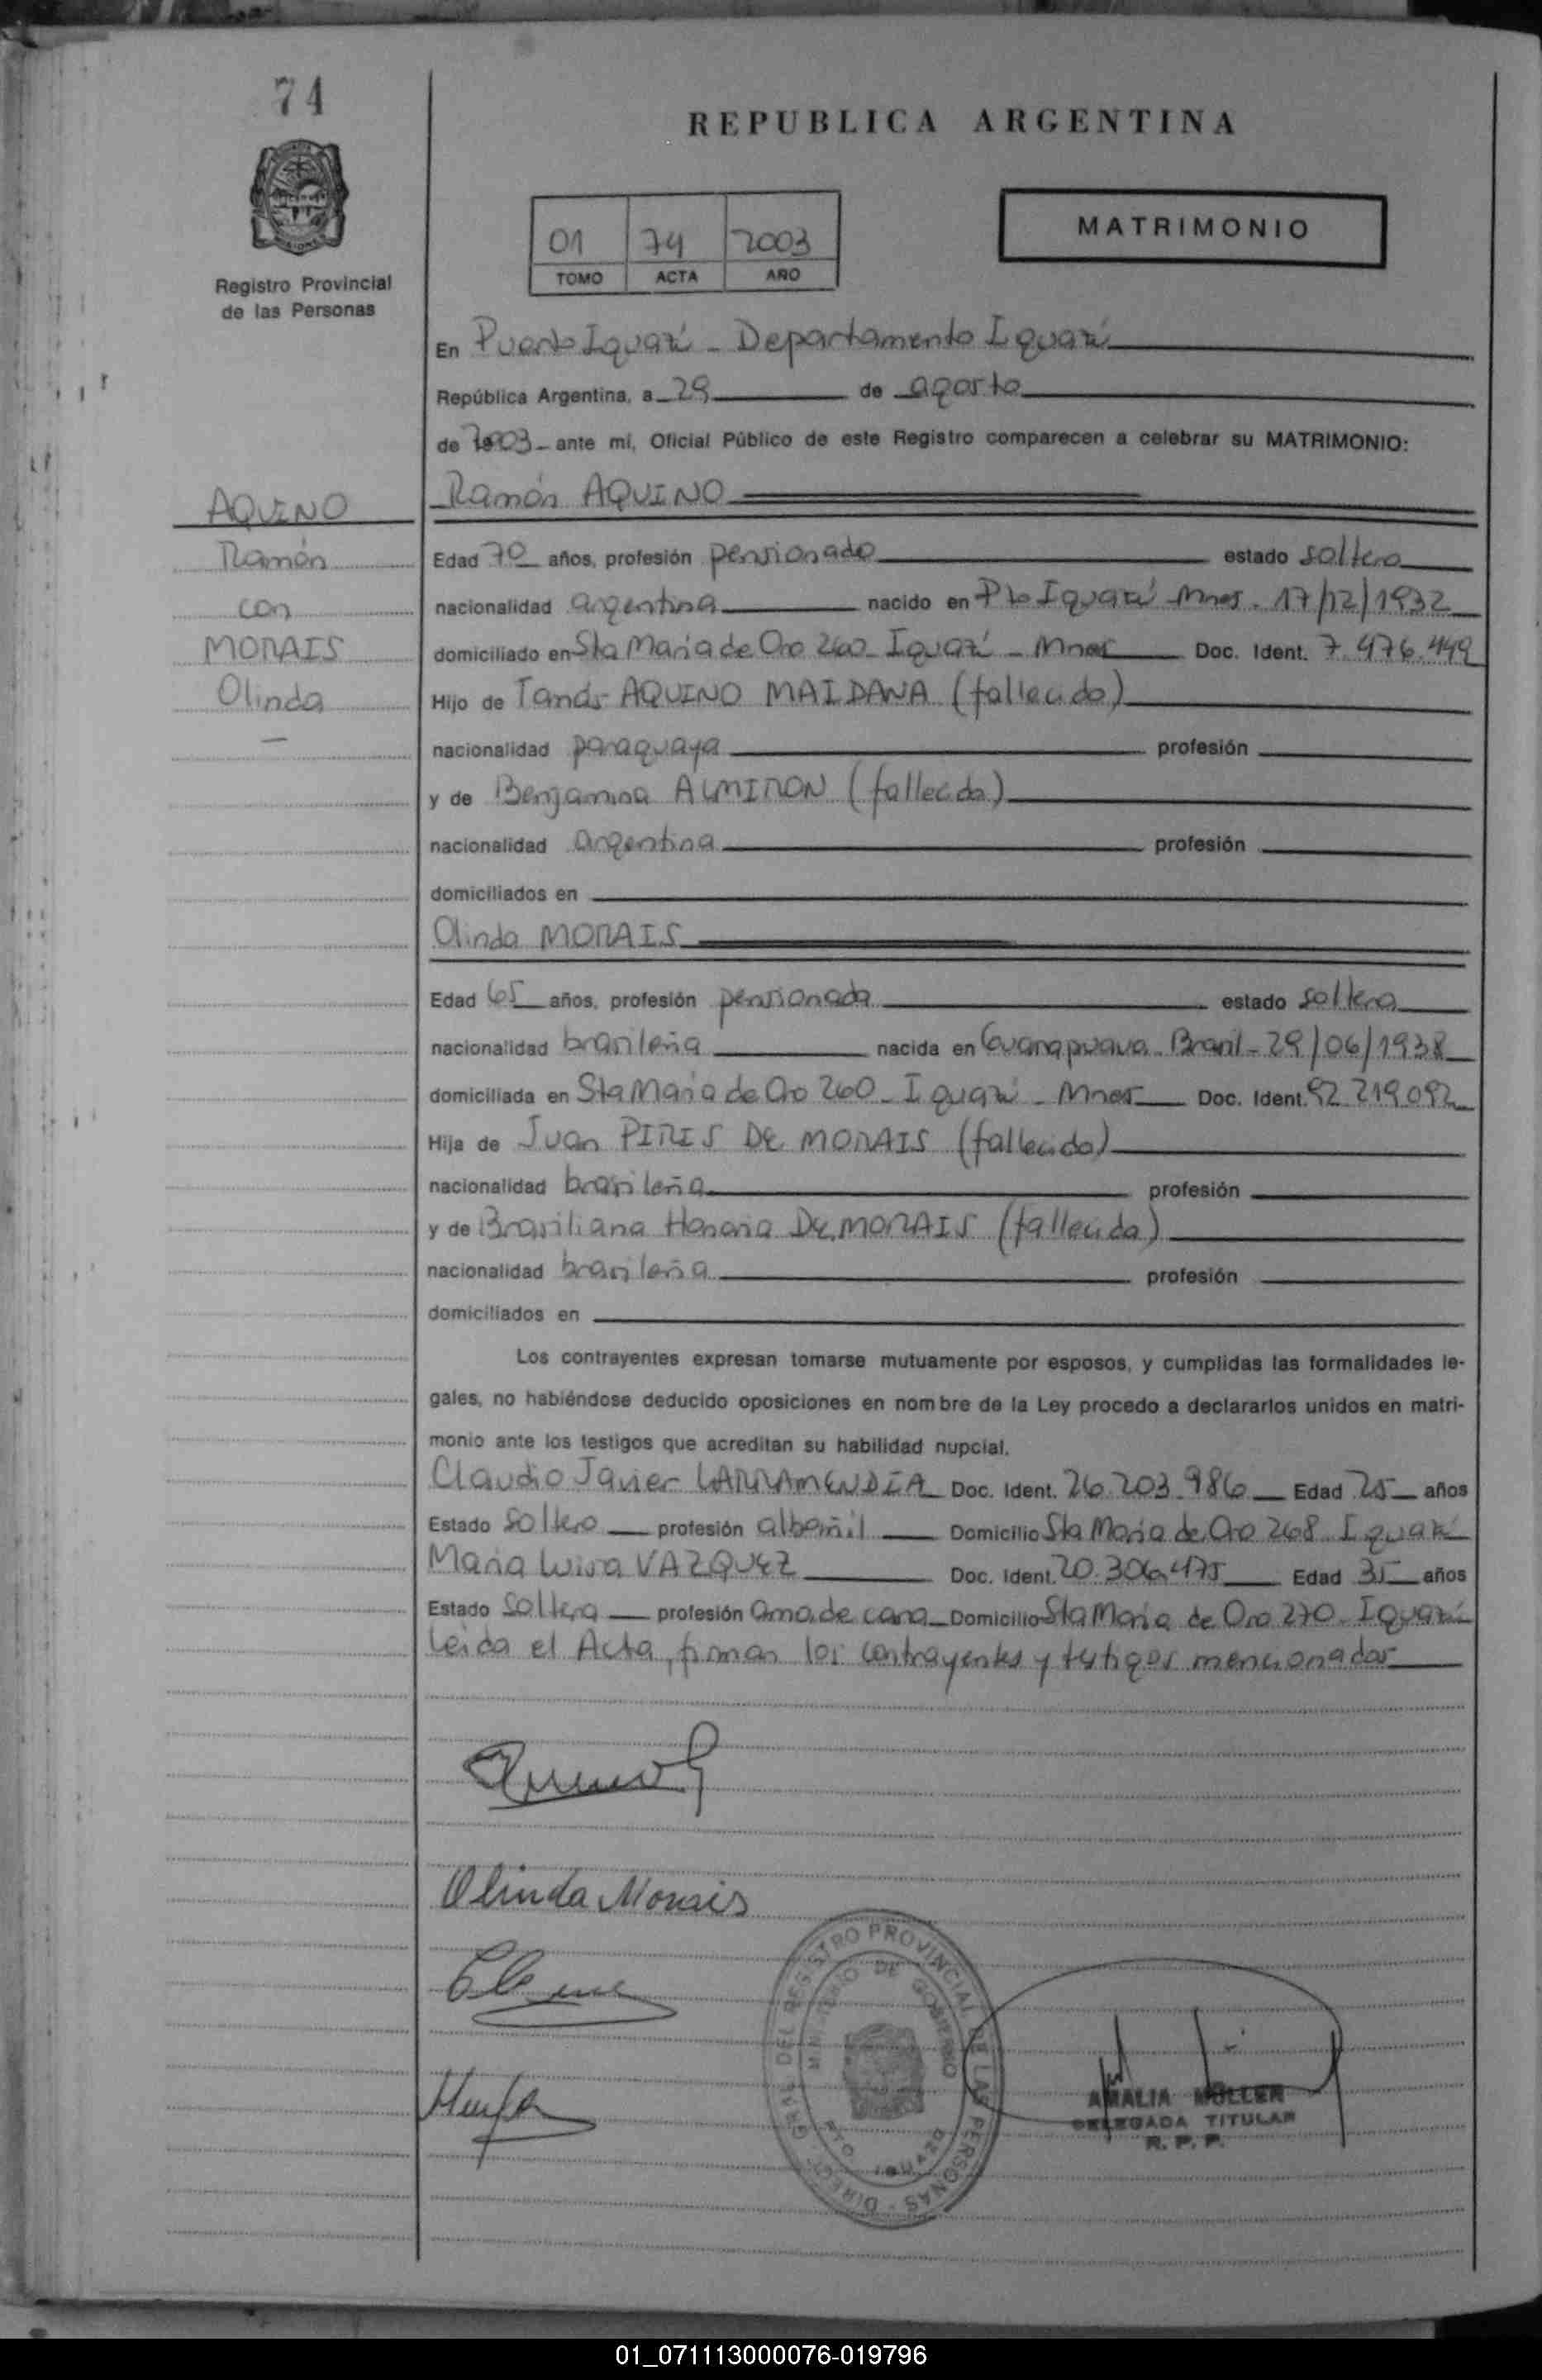 74
REPUBLICA ARGENTINA
01 74 2003
TOMO ACTA AÑO
MATRIMONIO
Registro Provincial
de las Personas
En Puerto Iguazú - Departamento Iguazú
República Argentina, a 29 de agosto
de 2003 ante mí, Oficial Público de este Registro comparecen a celebrar su MATRIMONIO:
AQUINO
Ramón
con
MORAIS
Olinda
Ramón AQUINO
Edad 70 años, profesión pensionado estado soltero
nacionalidad argentina nacido en Pto Iguazú Mnes. 17/12/1932
domiciliado en Sta Maria de Oro 260 - Iguazú - Mnes Doc. Ident. 7.476.449
Hijo de AQUINO MAIDANA (fallecido)
nacionalidad paraguaya profesión
y de Benjamina ALMIRON (fallecida)
nacionalidad argentina profesión
domiciliados en
Olinda MORAIS
Edad 65 años, profesión pensionada estado soltera
nacionalidad brasileña nacida en Guarapuava - Brasil - 29/06/1938
domiciliada en Sta Maria de Oro 260 - Iguazú - Mnes Doc. Ident. 92.219.092
Hija de Juan PIRES DE MORAIS (fallecido)
nacionalidad brasileña profesión
y de Brasiliana Honoria DE MORAIS (fallecida)
nacionalidad brasileña profesión
domiciliados en
Los contrayentes expresan tomarse mutuamente por esposos, y cumplidas las formalidades le-
gales, no habiéndose deducido oposiciones en nombre de la Ley procedo a declararlos unidos en matri-
monio ante los testigos que acreditan su habilidad nupcial.
Claudio Javier LARRAMENDIA Doc. Ident. 26.203.986 Edad 25 años
Estado soltero profesión albañil Domicilio Sta Maria de Oro 268 Iguazú
Maria Luisa VAZQUEZ Doc. Ident. 20.306.475 Edad 35 años
Estado soltera profesión ama de casa Domicilio Sta Maria de Oro 270 - Iguazú
Leida el Acta, firman los contrayentes y testigos mencionados
Olinda Morais
DIREC. GRAL. DEL REGISTRO PROVINCIAL DE LAS PERSONAS
MINISTERIO DE GOBIERNO
AMALIA MÜLLER
DELEGADA TITULAR
R. P. P.
01_071113000076-019796